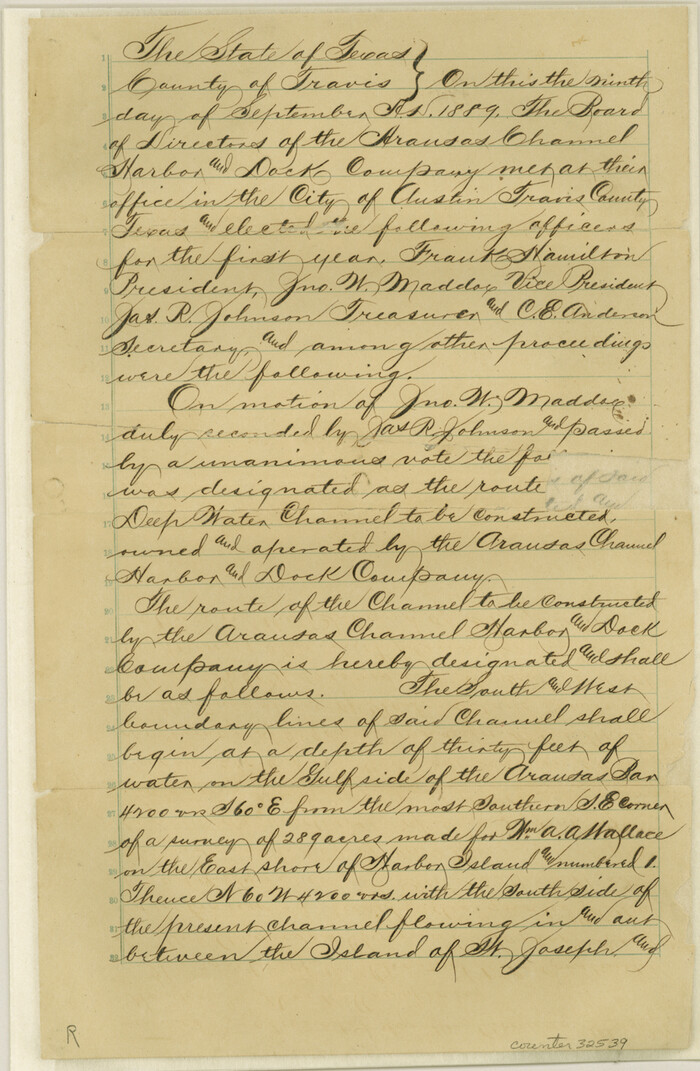 The State of Texas }
County of Travis } On this the ninth
day of September A.D. 1889. The Board
of Directors of the Aransas Channel
Harbor and Dock Company met at their
office in the City of Austin Travis County
Texas and elected the following officers
for the first year. Frank Hamilton
President, Jno. W. Maddox Vice President
Jas. R. Johnson Treasurer and C.E. Anderson
Secretary, and among other proceedings
were the following.
On motion of Jno. W. Maddox
duly seconded by Jas R. Johnson and passed
by a unanimous vote the fo
was designated as the route of said
Deep Water Channel to be constructed,
owned and operated by the Aransas Channel
Harbor and Dock Company.
The route of the Channel to be constructed
by the Aransas Channel Harbor and Dock
Company is hereby designated and shall
be as follows. The South and West
boundary lines of said Channel shall
begin at a depth of thirty feet of
water on the Gulf side of the Aransas Bar
4200 vrs S60°E from the most Southern S.E corner
of a survey of 289 acres made for Wm A.A Wallace
on the East shore of Harbor Island and numbered 1.
Thence N60W 4200 vrs. with the South side of
the present channel flowing in and out
between the Island of St. Joseph and
R
counter 32539